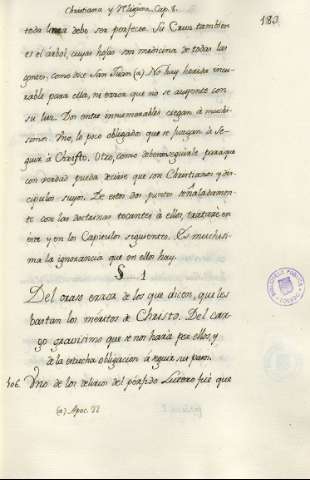 Christiana y Religiosa. Cap. 8.
183.
toda linea debe ser perfecta. Su Cruz tambien
es el arbol, cuyas hojas son medicina de todas las
gentes, como dice San Juan (a). No hay herida incu-
rable para ella, ni error que no se ausente con
su luz. Dos entre innumerables ciegan à muchi-
simos. Uno, lo poco obligados que se juzgan à se-
guir à Christo. Otro, como deberan seguirle para que
con verdad pueda decirse que son Christianos y dis-
cipulos suyos. De estos dos puntos señaladamen-
te con las doctrinas tocantes à ellos, tratarè en
este y en los Capitulos siguientes. Es muchisi-
ma la ignorancia que en ellos hay.
§ 1
Del craso error de los que dicen, que les
bastan los méritos de Christo. Del car-
go gravisimo que se nos harà por ellos, y
de la estrecha obligacion à seguir sus pasos.
306. Uno de los delirios del pérfido Lutero fuè que
(a) Apoc. 22
BIBLIOTECA PUBLICA
TOLEDO